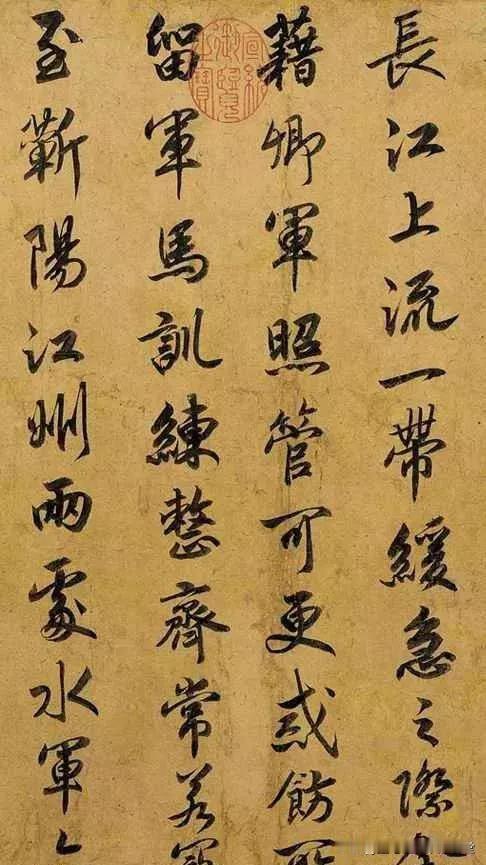 長江上流一帶緩急之際
藉卿軍照管可更戒飭所
留軍馬訓練整齊常若寇
至蘄陽江州兩處水軍